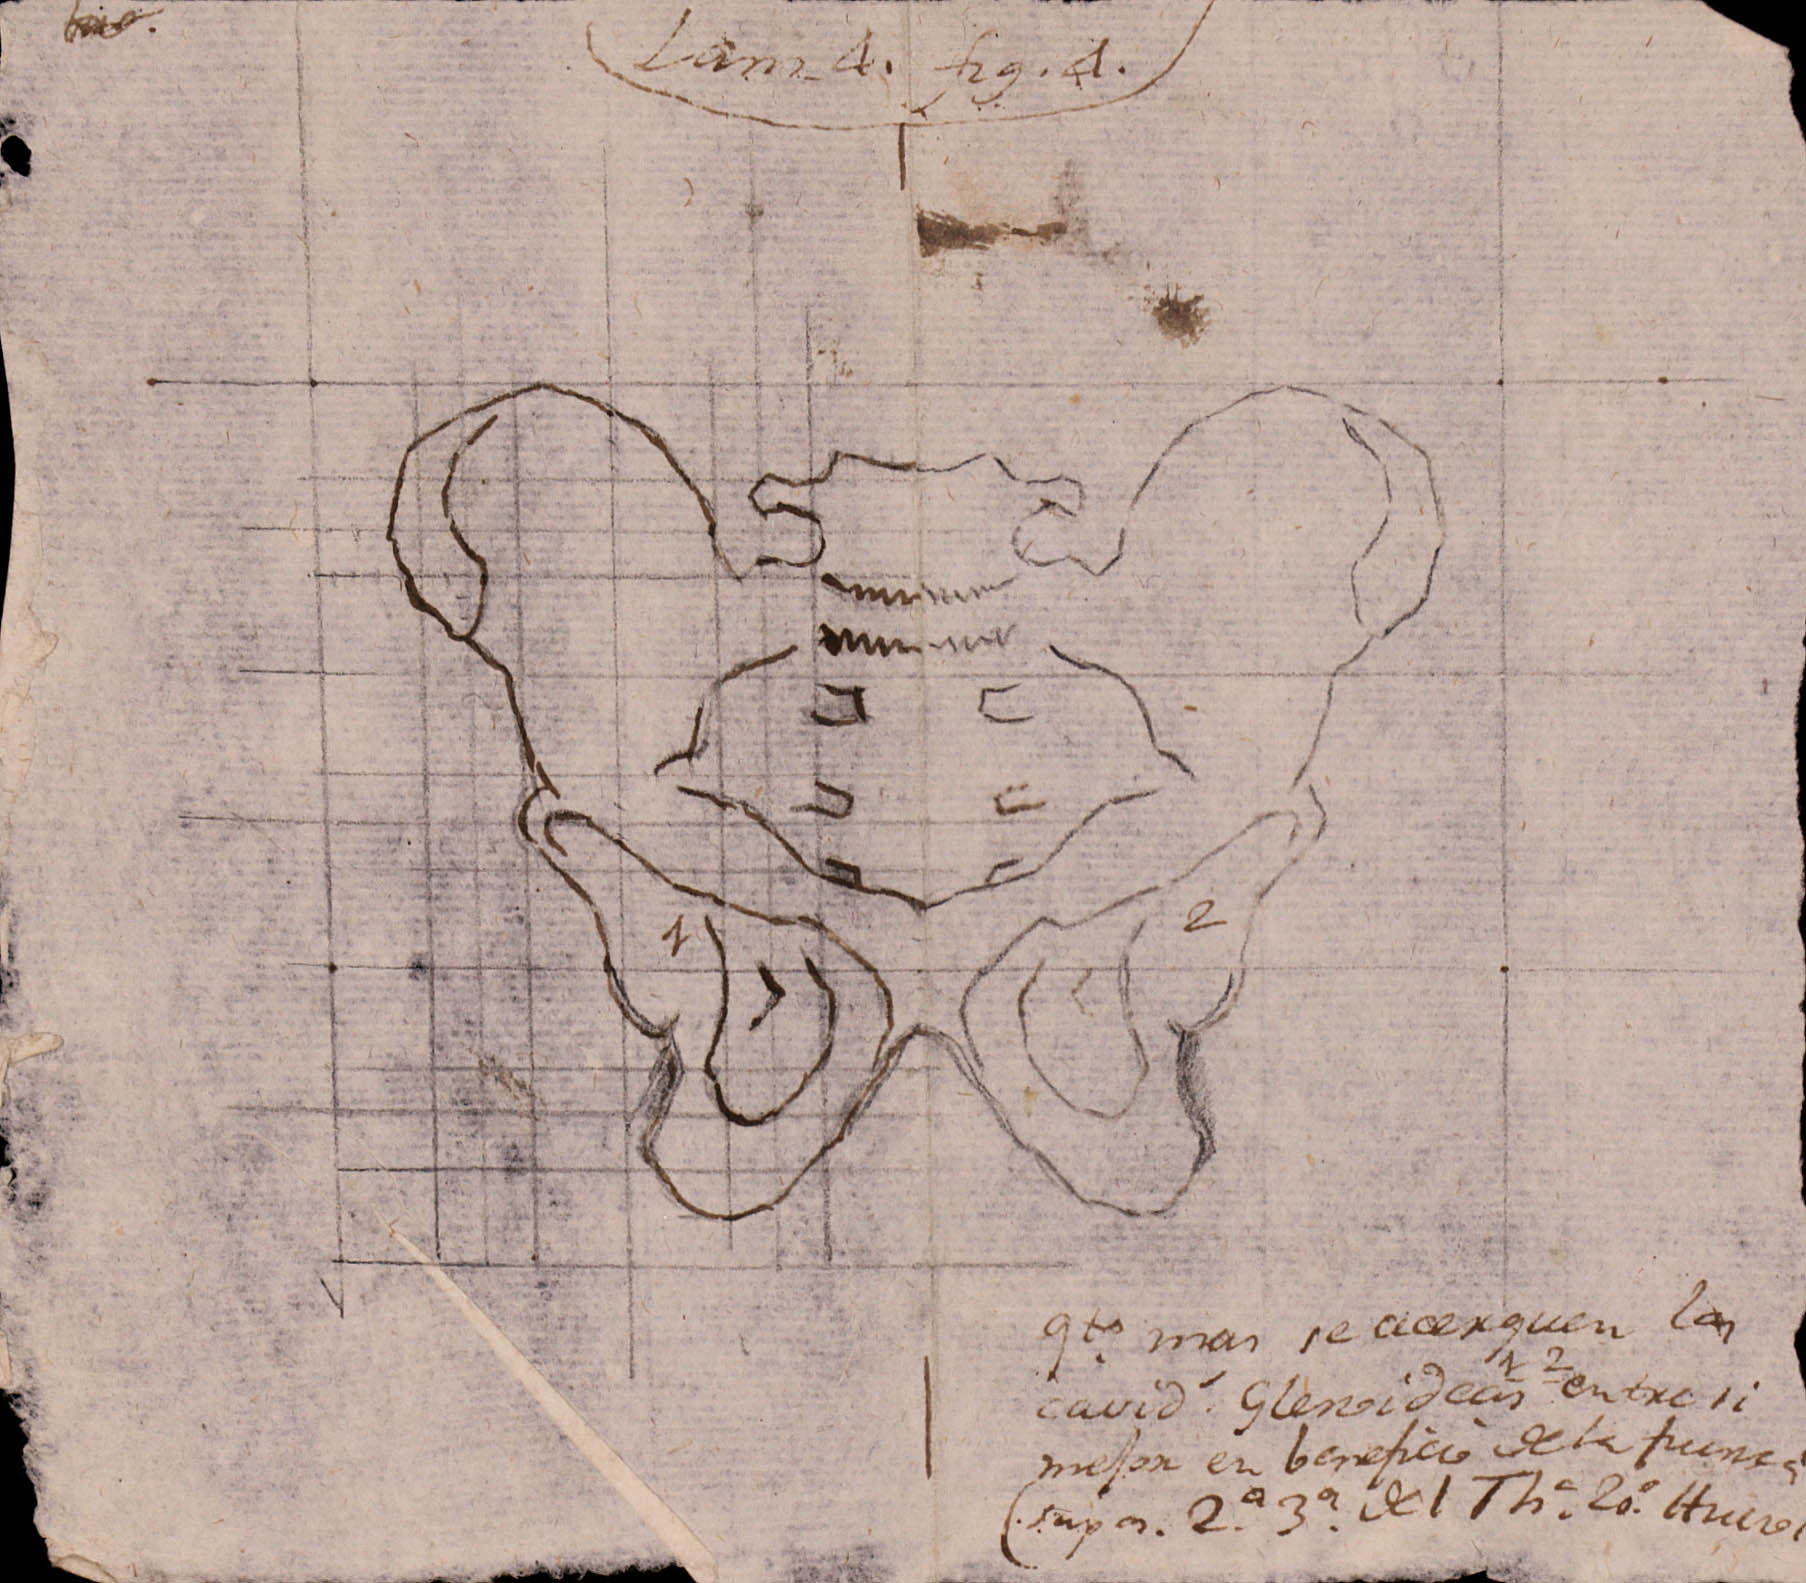 Lam. 4. fig. 4.
1
2
qto. mas se acerquen las
1 2
cavid.s Glenoideas entre si
mejor en beneficio de la
2.a 3.a del Th.a 20.